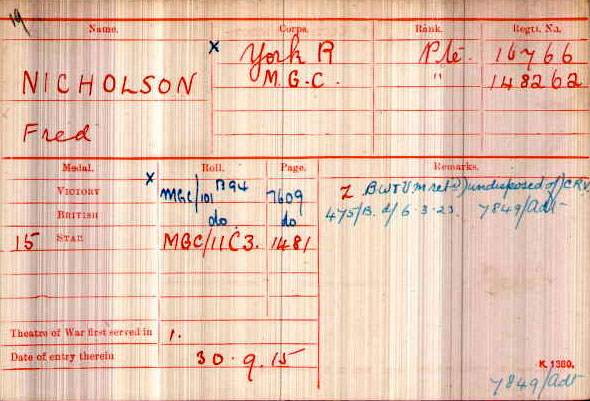 19
Name. Corps. Rank. Regtl. No.
X York R Pte. 16766
NICHOLSON M.G.C. " 148262
Fred
Medal. Roll. Page. Remarks.
VICTORY X MGC/101 B94 7609 Z BWT V m retd) undisposed of) CRV
BRITISH do do 475/B. d/ 6-3-23. 7849/Adt
15 STAR MGC/11C3. 1481
Theatre of War first served in 1.
Date of entry therein 30.9.15 K 1380.
7849/Adt